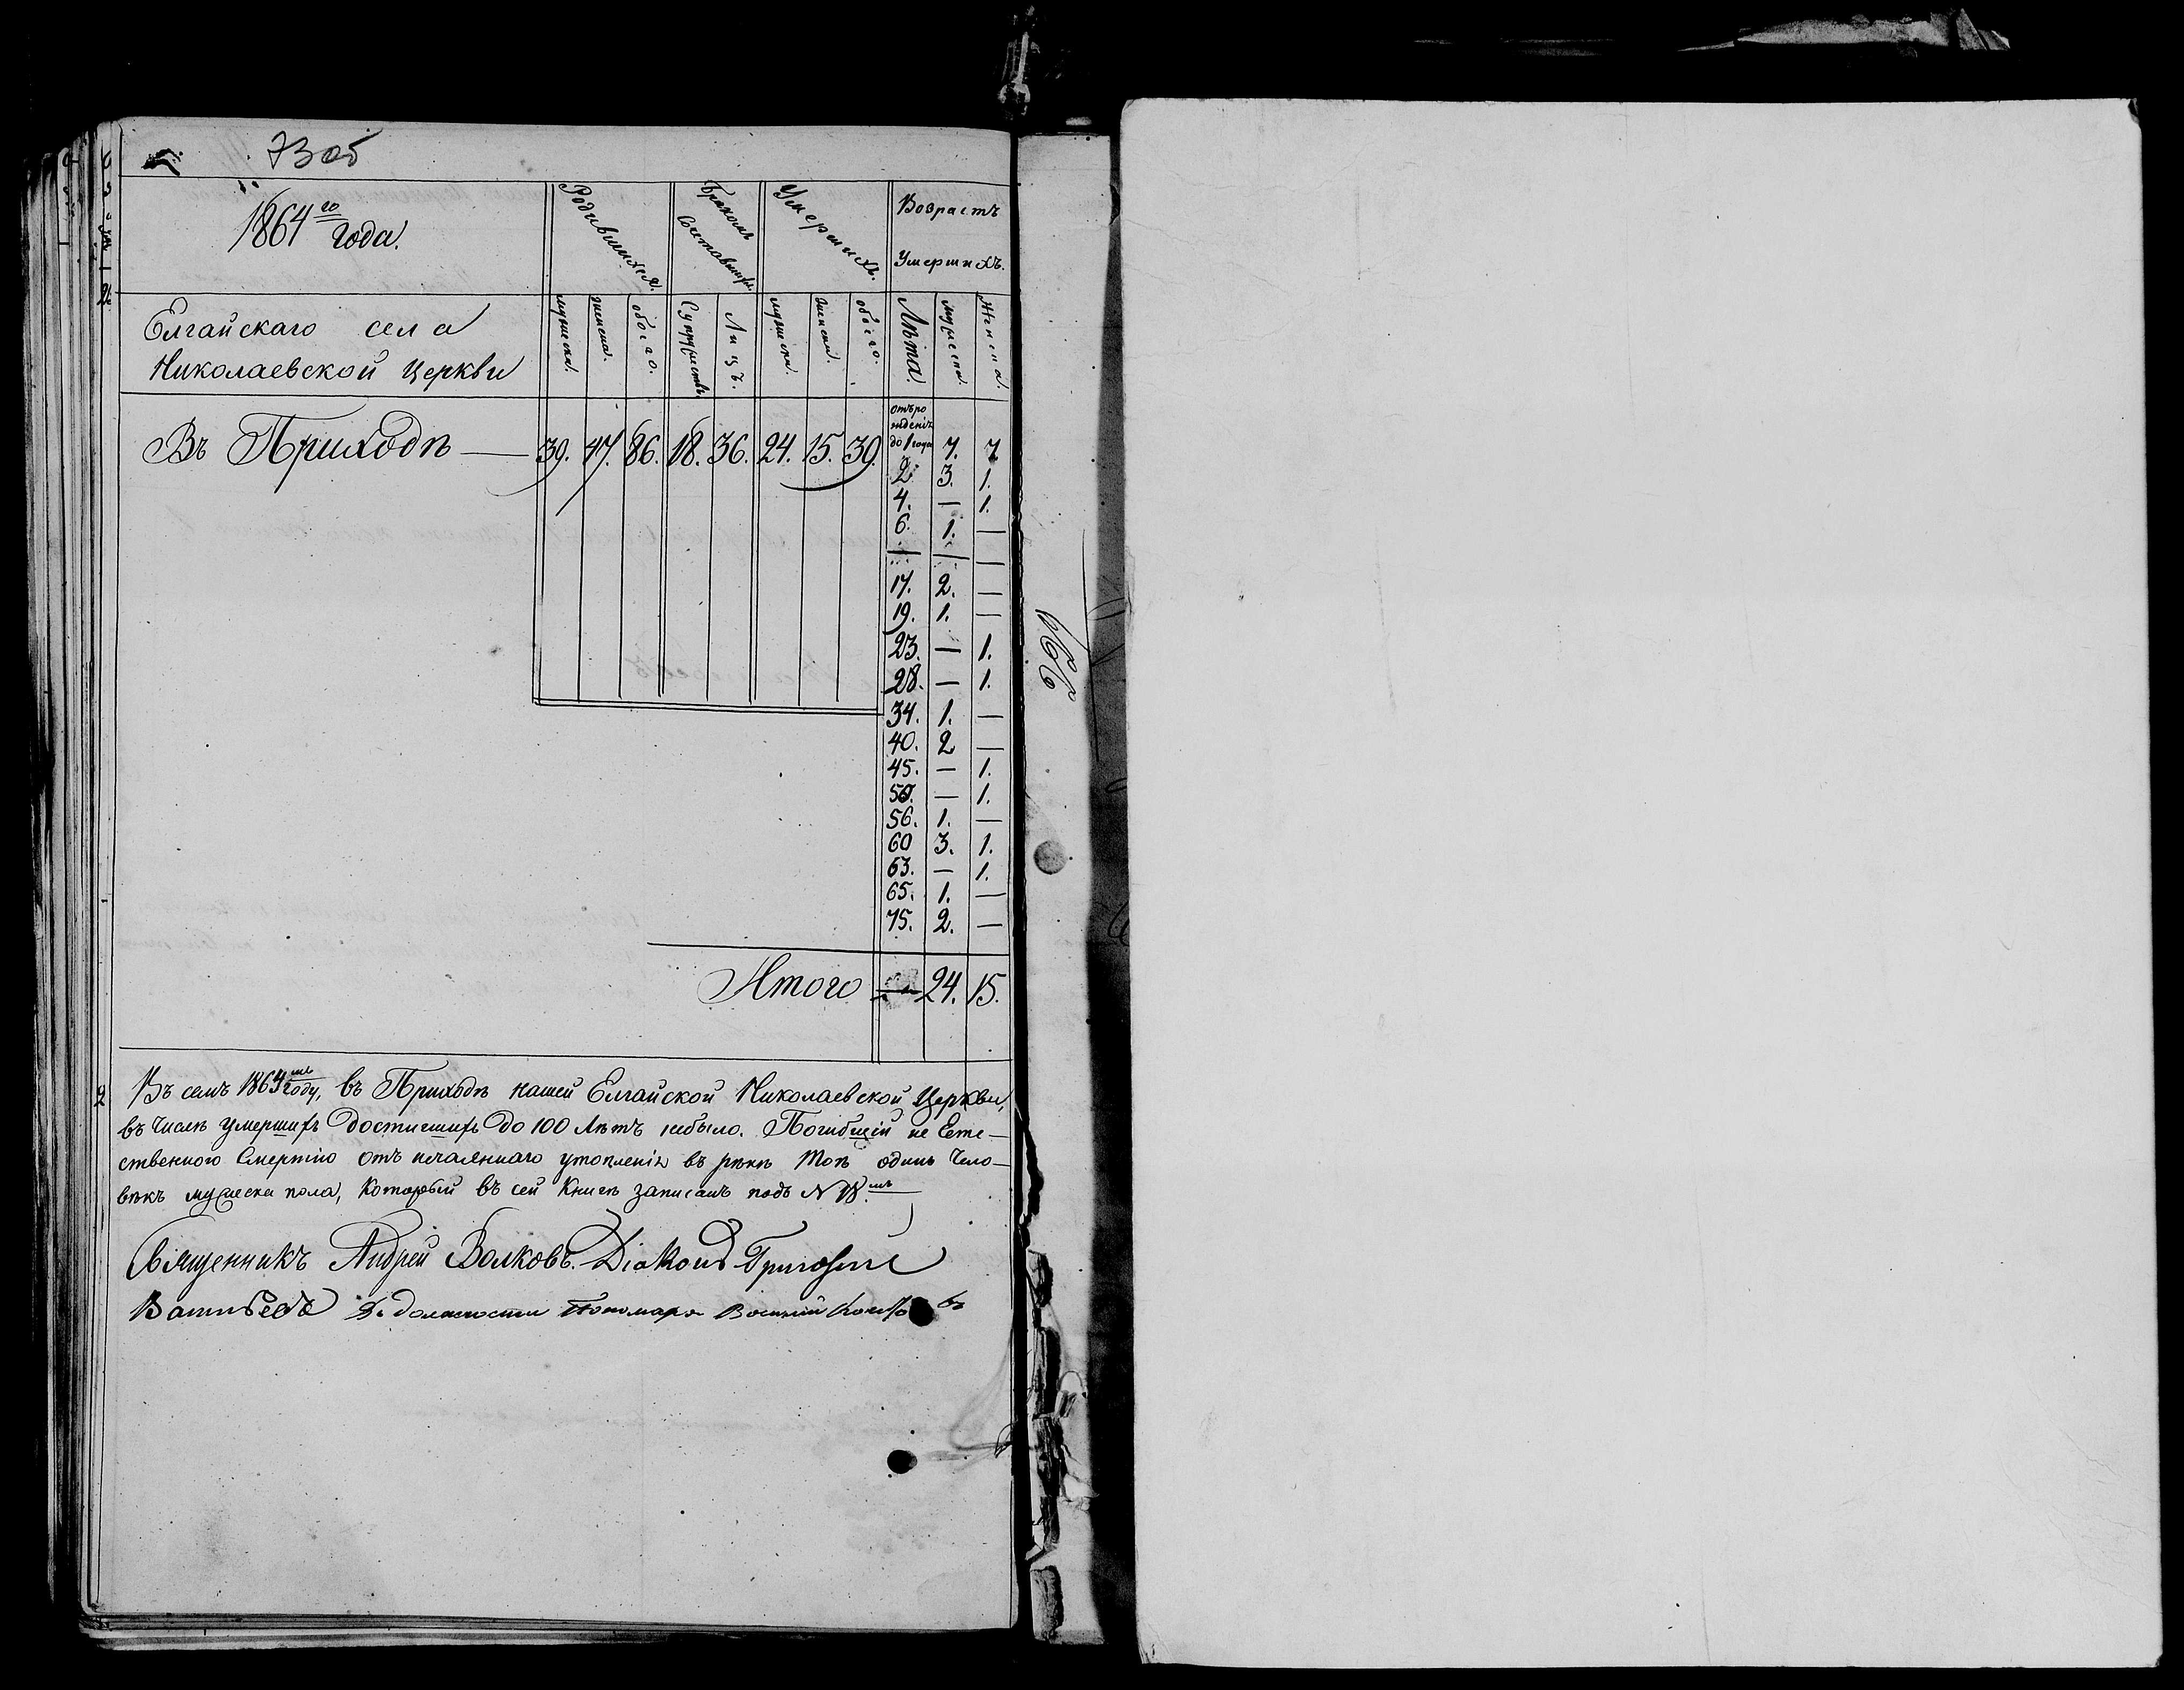 73об
1864го года.
Родившихся. Бракомъ Сочетавшихся. Умершихъ. Возрастъ Умершихъ.
Елгайскаго села
Николаевской Церкви
мужеска. женска. обоего. Супружествъ Лицъ. мужеска. женска. обоего. Лѣта. мужеска. Женска.
Въ Приходѣ — 39. 47. 86. 18. 36. 24. 15. 39.
отъ рожденія до 1 года 7. 7
2. 3. 1.
4. — 1.
6. 1. —
— — —
17. 2. —
19. 1. —
23. — 1.
28. — 1.
34. 1. —
40. 2 —
45. — 1.
50. — 1.
56. 1. —
60 3. 1.
63. — 1.
65. 1. —
75. 2. —
Итого — 24. 15.
Въ семъ 1864мъ году, въ Приходѣ нашей Елгайской Николаевской Церкви,
въ Числѣ умершихъ Достигшихъ До 100 Лѣтъ небыло. Погибшій не Есте-
ственного Смертію отъ нечаяннаго утопленія въ рѣкѣ Томѣ одинъ Чело-
вѣкъ мужеска пола, Который въ сей Книгѣ записанъ подъ N 18.мъ
Священникъ Андрей Волковъ. Діаконъ Григорій
Въ должности Пономаря